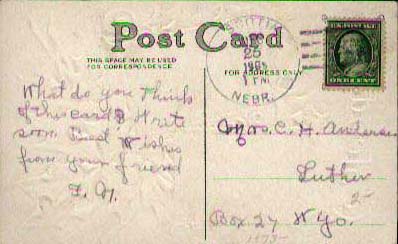 Post Card
THIS SPACE MAY BE USED
FOR CORRESPONDENCE
FOR ADDRESS ONLY
25
1 PM
NEBR.
ONE CENT
What do you think
of this card? Write
soon. Best Wishes
from your friend
Mrs. C. H. Anderson
Luther
Box 27 Wyo.